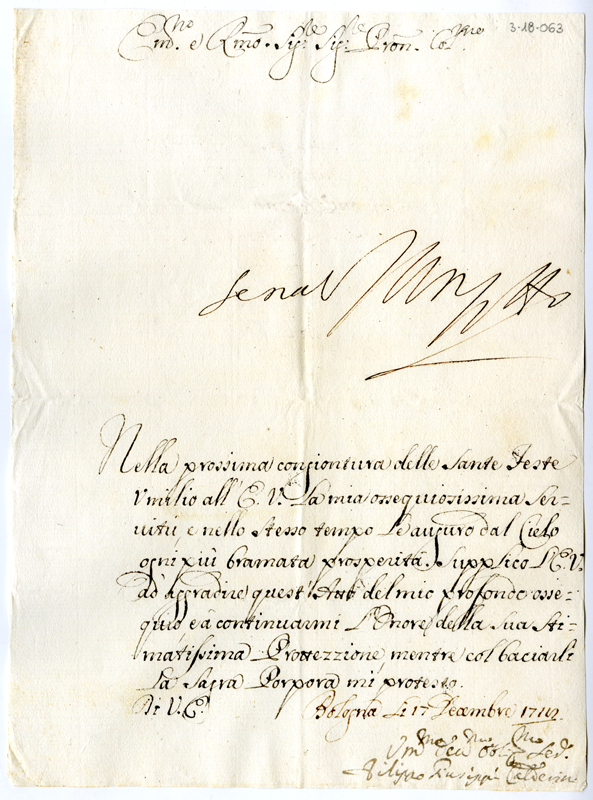 3-18-063
Em.mo e Rmo. Sig.re Sig.re Pron. Col.mo
Senat
Nella prossima congiontura delle Sante Feste
Vmilio all' E. V. La mia ossequiosissima Ser-
uitù e nello stesso tempo Le auguro dal Cielo
ogni più bramata prosperità. Supplico L'E. V.
ad aggradire quest' Atti del mio profondo osse-
quio e à continuarmi L'Onore della Sua Sti-
matissima Prottezzione mentre col baciarli
La Sagra Porpora mi protesto.
Di V. E. Bologna Li 17 Decembre 1712.
Vm.mo Deu.mo Obl.mo Se.
Filippo Giuseppe Calderini